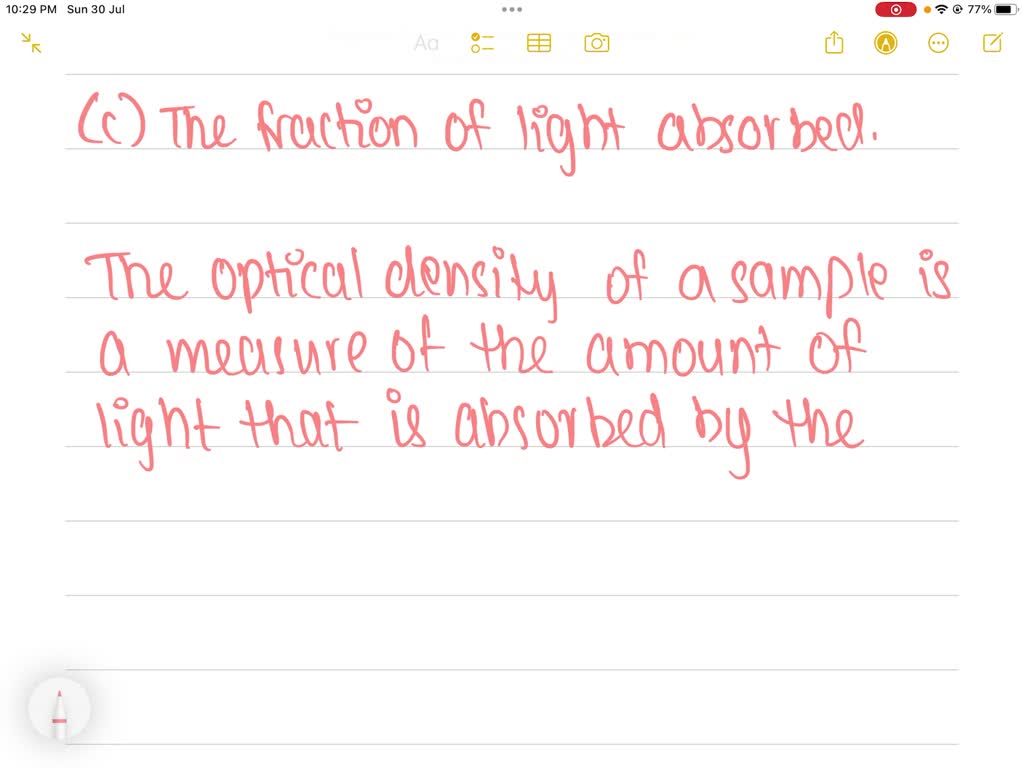 10:29 PM Sun 30 Jul
77%
Aa
(c) The fraction of light absorbed.
The optical density of a sample is
a measure of the amount of
light that is absorbed by the